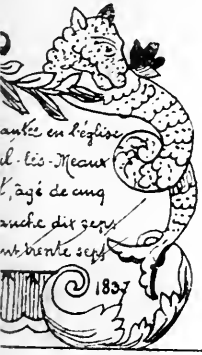 antée en l'église
il-lès-Meaux
t, âgé de cinq
anche dix sept
nt trente sept
1837